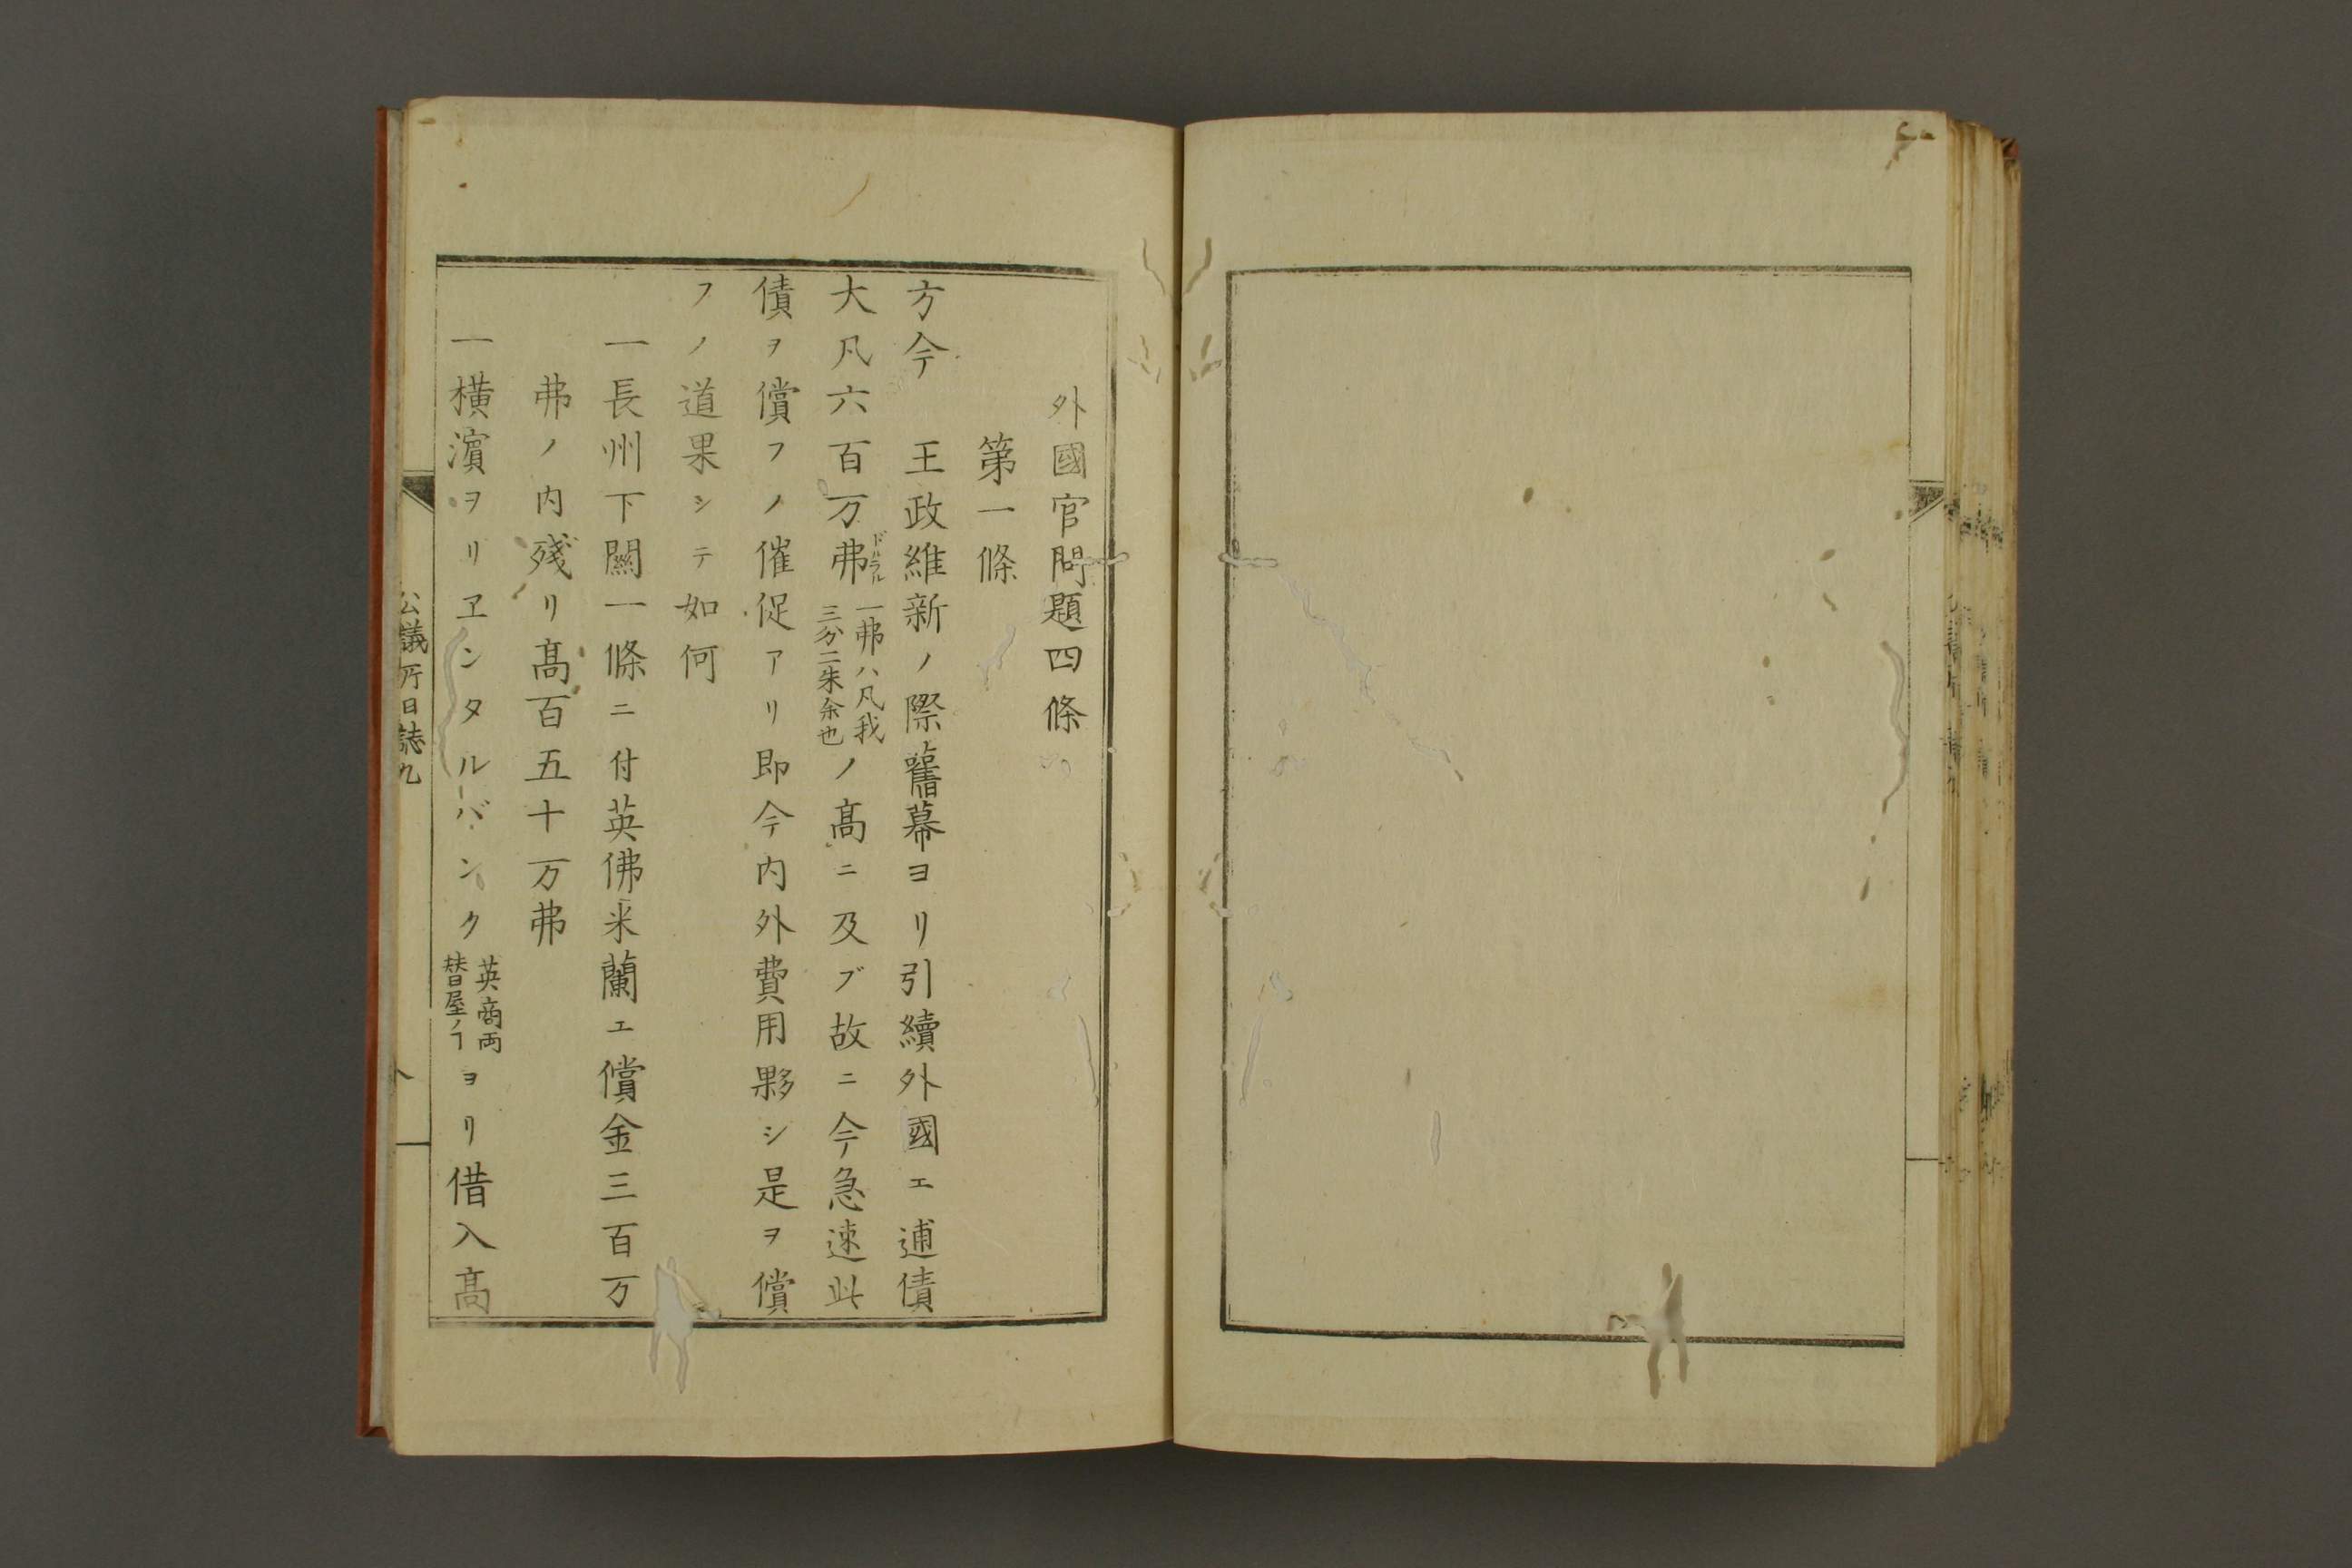 外國官問題四條
第一條
方今　王政維新ノ際舊幕ヨリ引續外國エ逋債
大凡六百万弗ドルラル一弗ハ凡我三分二朱余也ノ髙ニ及ブ故ニ今急速此
債ヲ償フノ催促アリ即今内外費用夥シ是ヲ償
フノ道果シテ如何
一長州下關一條ニ付英佛米蘭エ償金三百万
弗ノ内殘リ髙百五十万弗
一橫濵ヲリヱンタルバンク英商両替屋ノヿヨリ借入髙
公議所日誌九